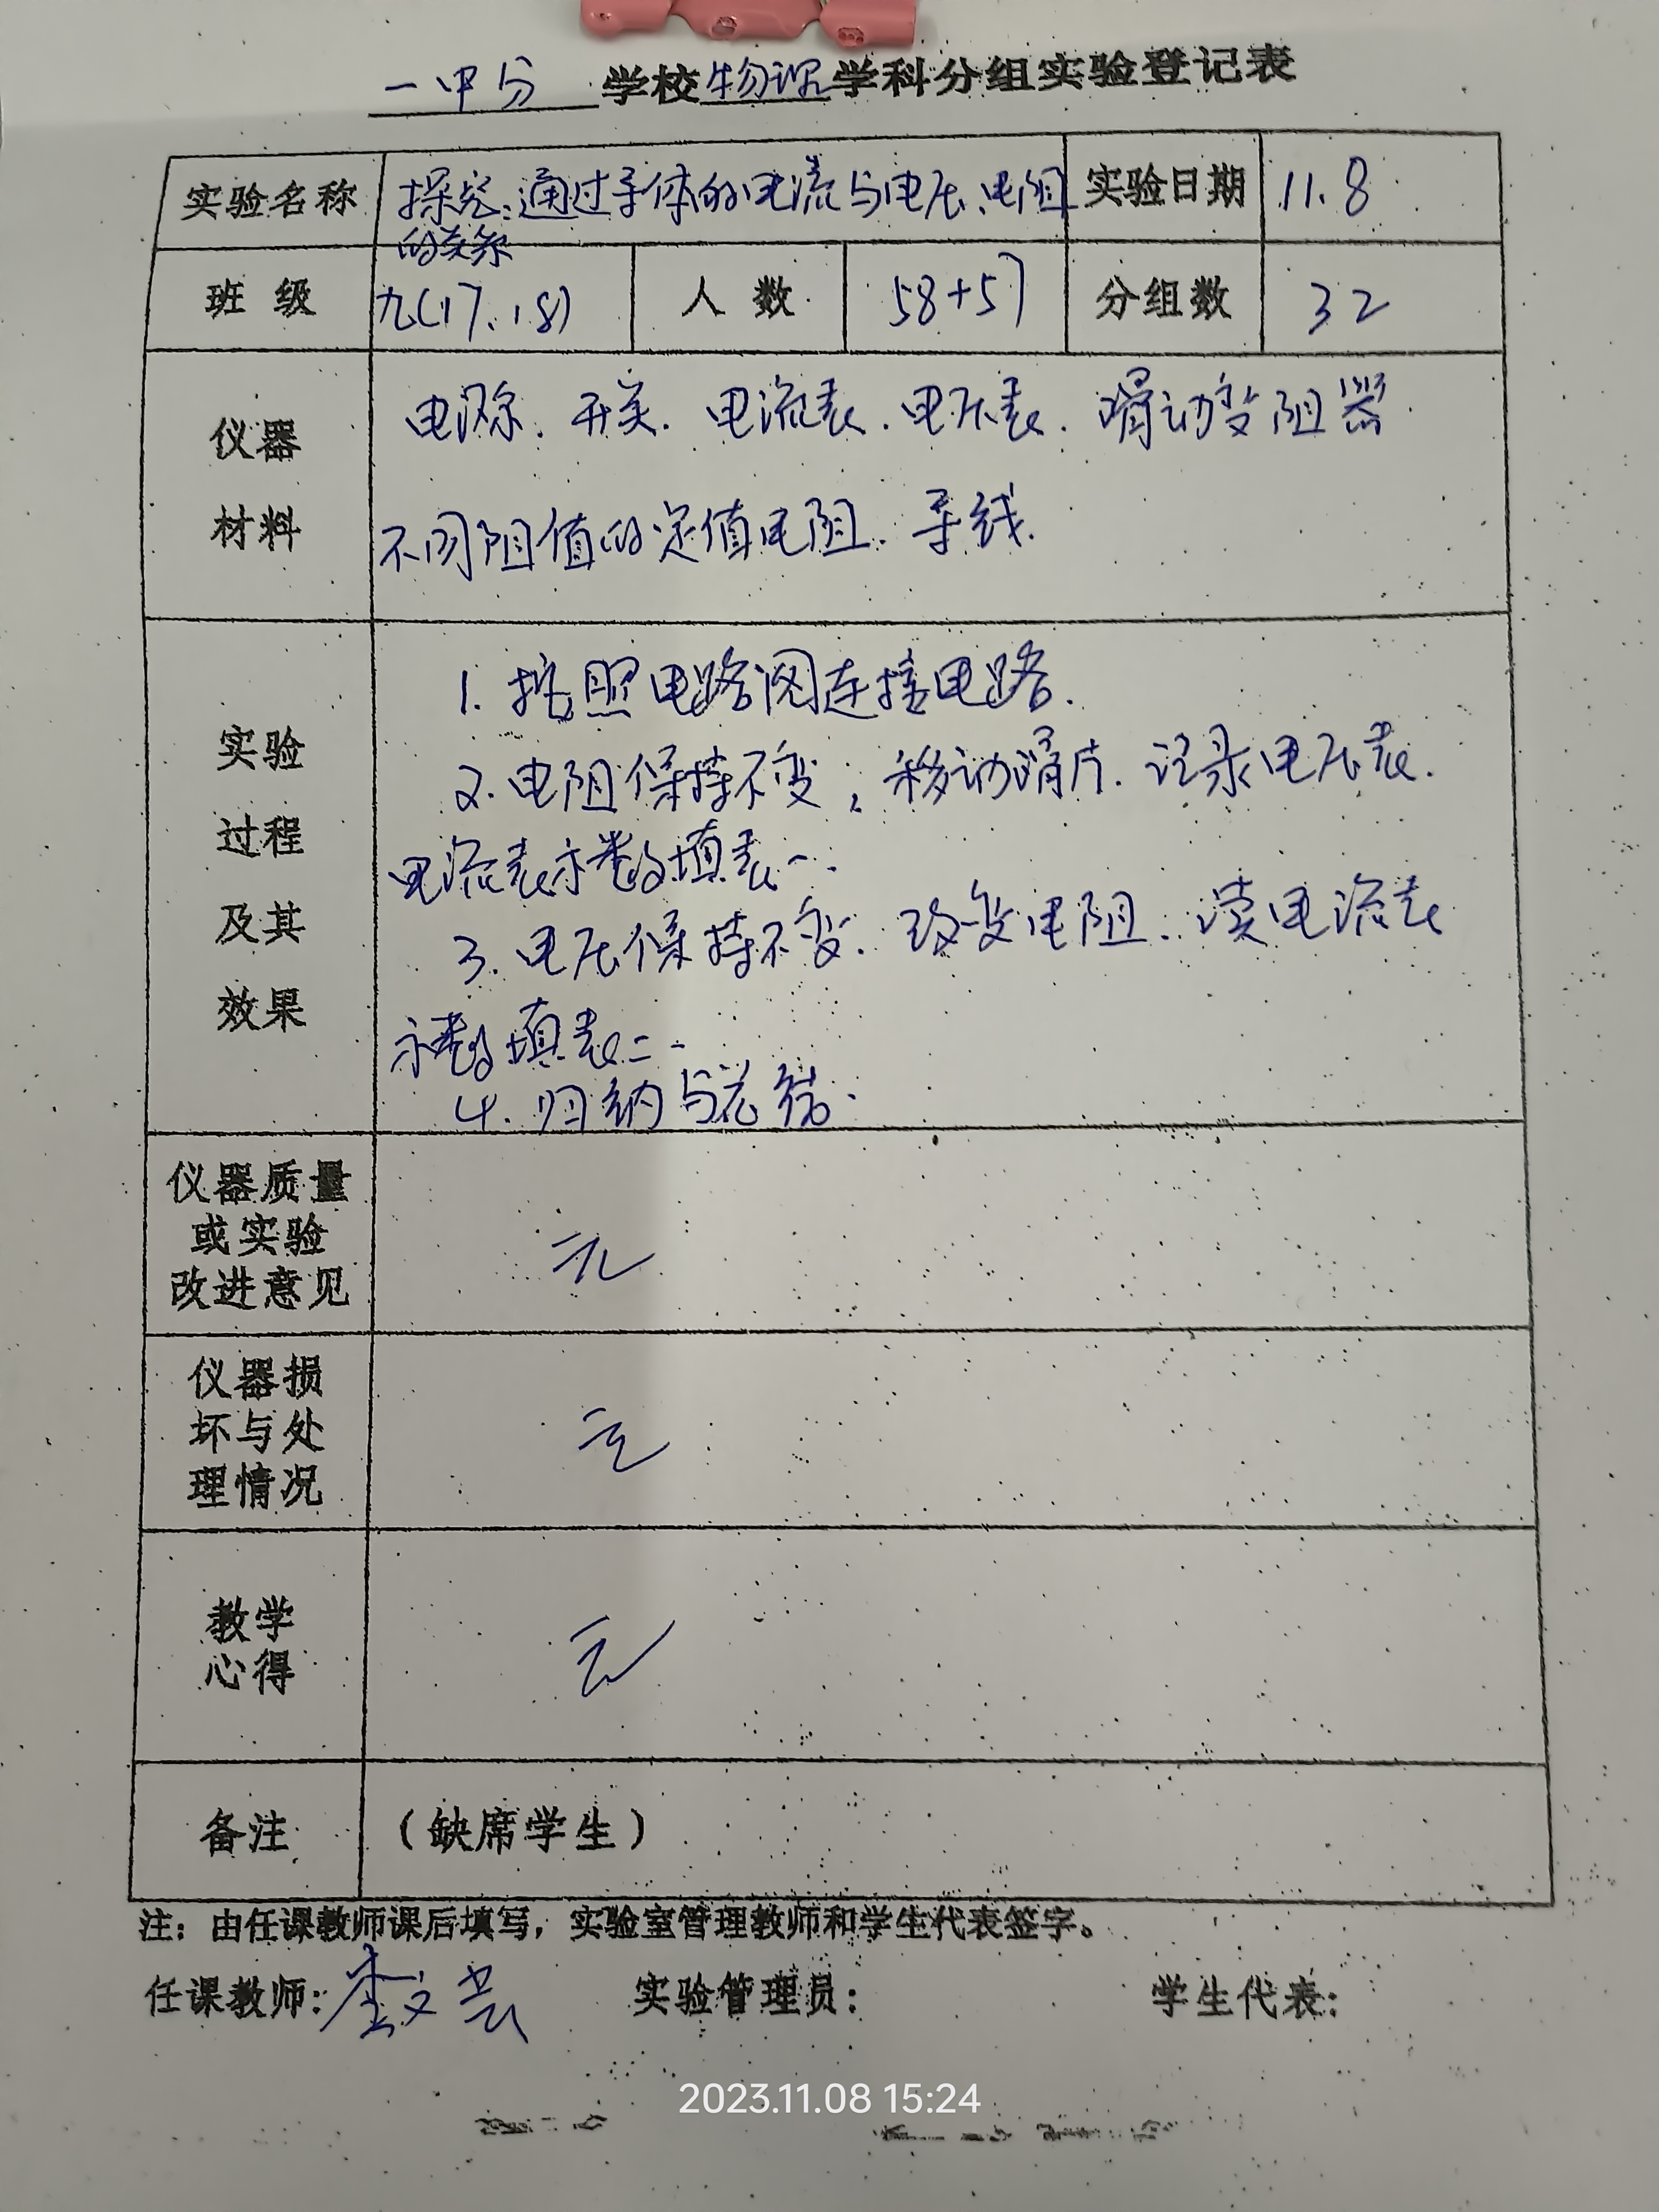 一中分学校物理学科分组实验登记表
实验名称 探究:通过导体的电流与电压、电阻的关系 实验日期 11.8
班级 九(17、18) 人数 58+57 分组数 32
仪器材料
电源. 开关. 电流表. 电压表. 滑动变阻器
不同阻值的定值电阻. 导线.
实验过程及其效果
1. 按照电路图连接电路.
2. 电阻保持不变; 移动滑片. 记录电压表.
电流表示数填表一.
3. 电压保持不变. 改变电阻. 读电流表
示数填表二.
4. 归纳与总结.
仪器质量
或实验
改进意见
无
仪器损
坏与处
理情况
无
教学
心得
无
备注 (缺席学生)
注:由任课教师课后填写,实验室管理教师和学生代表签字。
任课教师: 李文芸 实验管理员: 学生代表:
2023.11.08 15:24